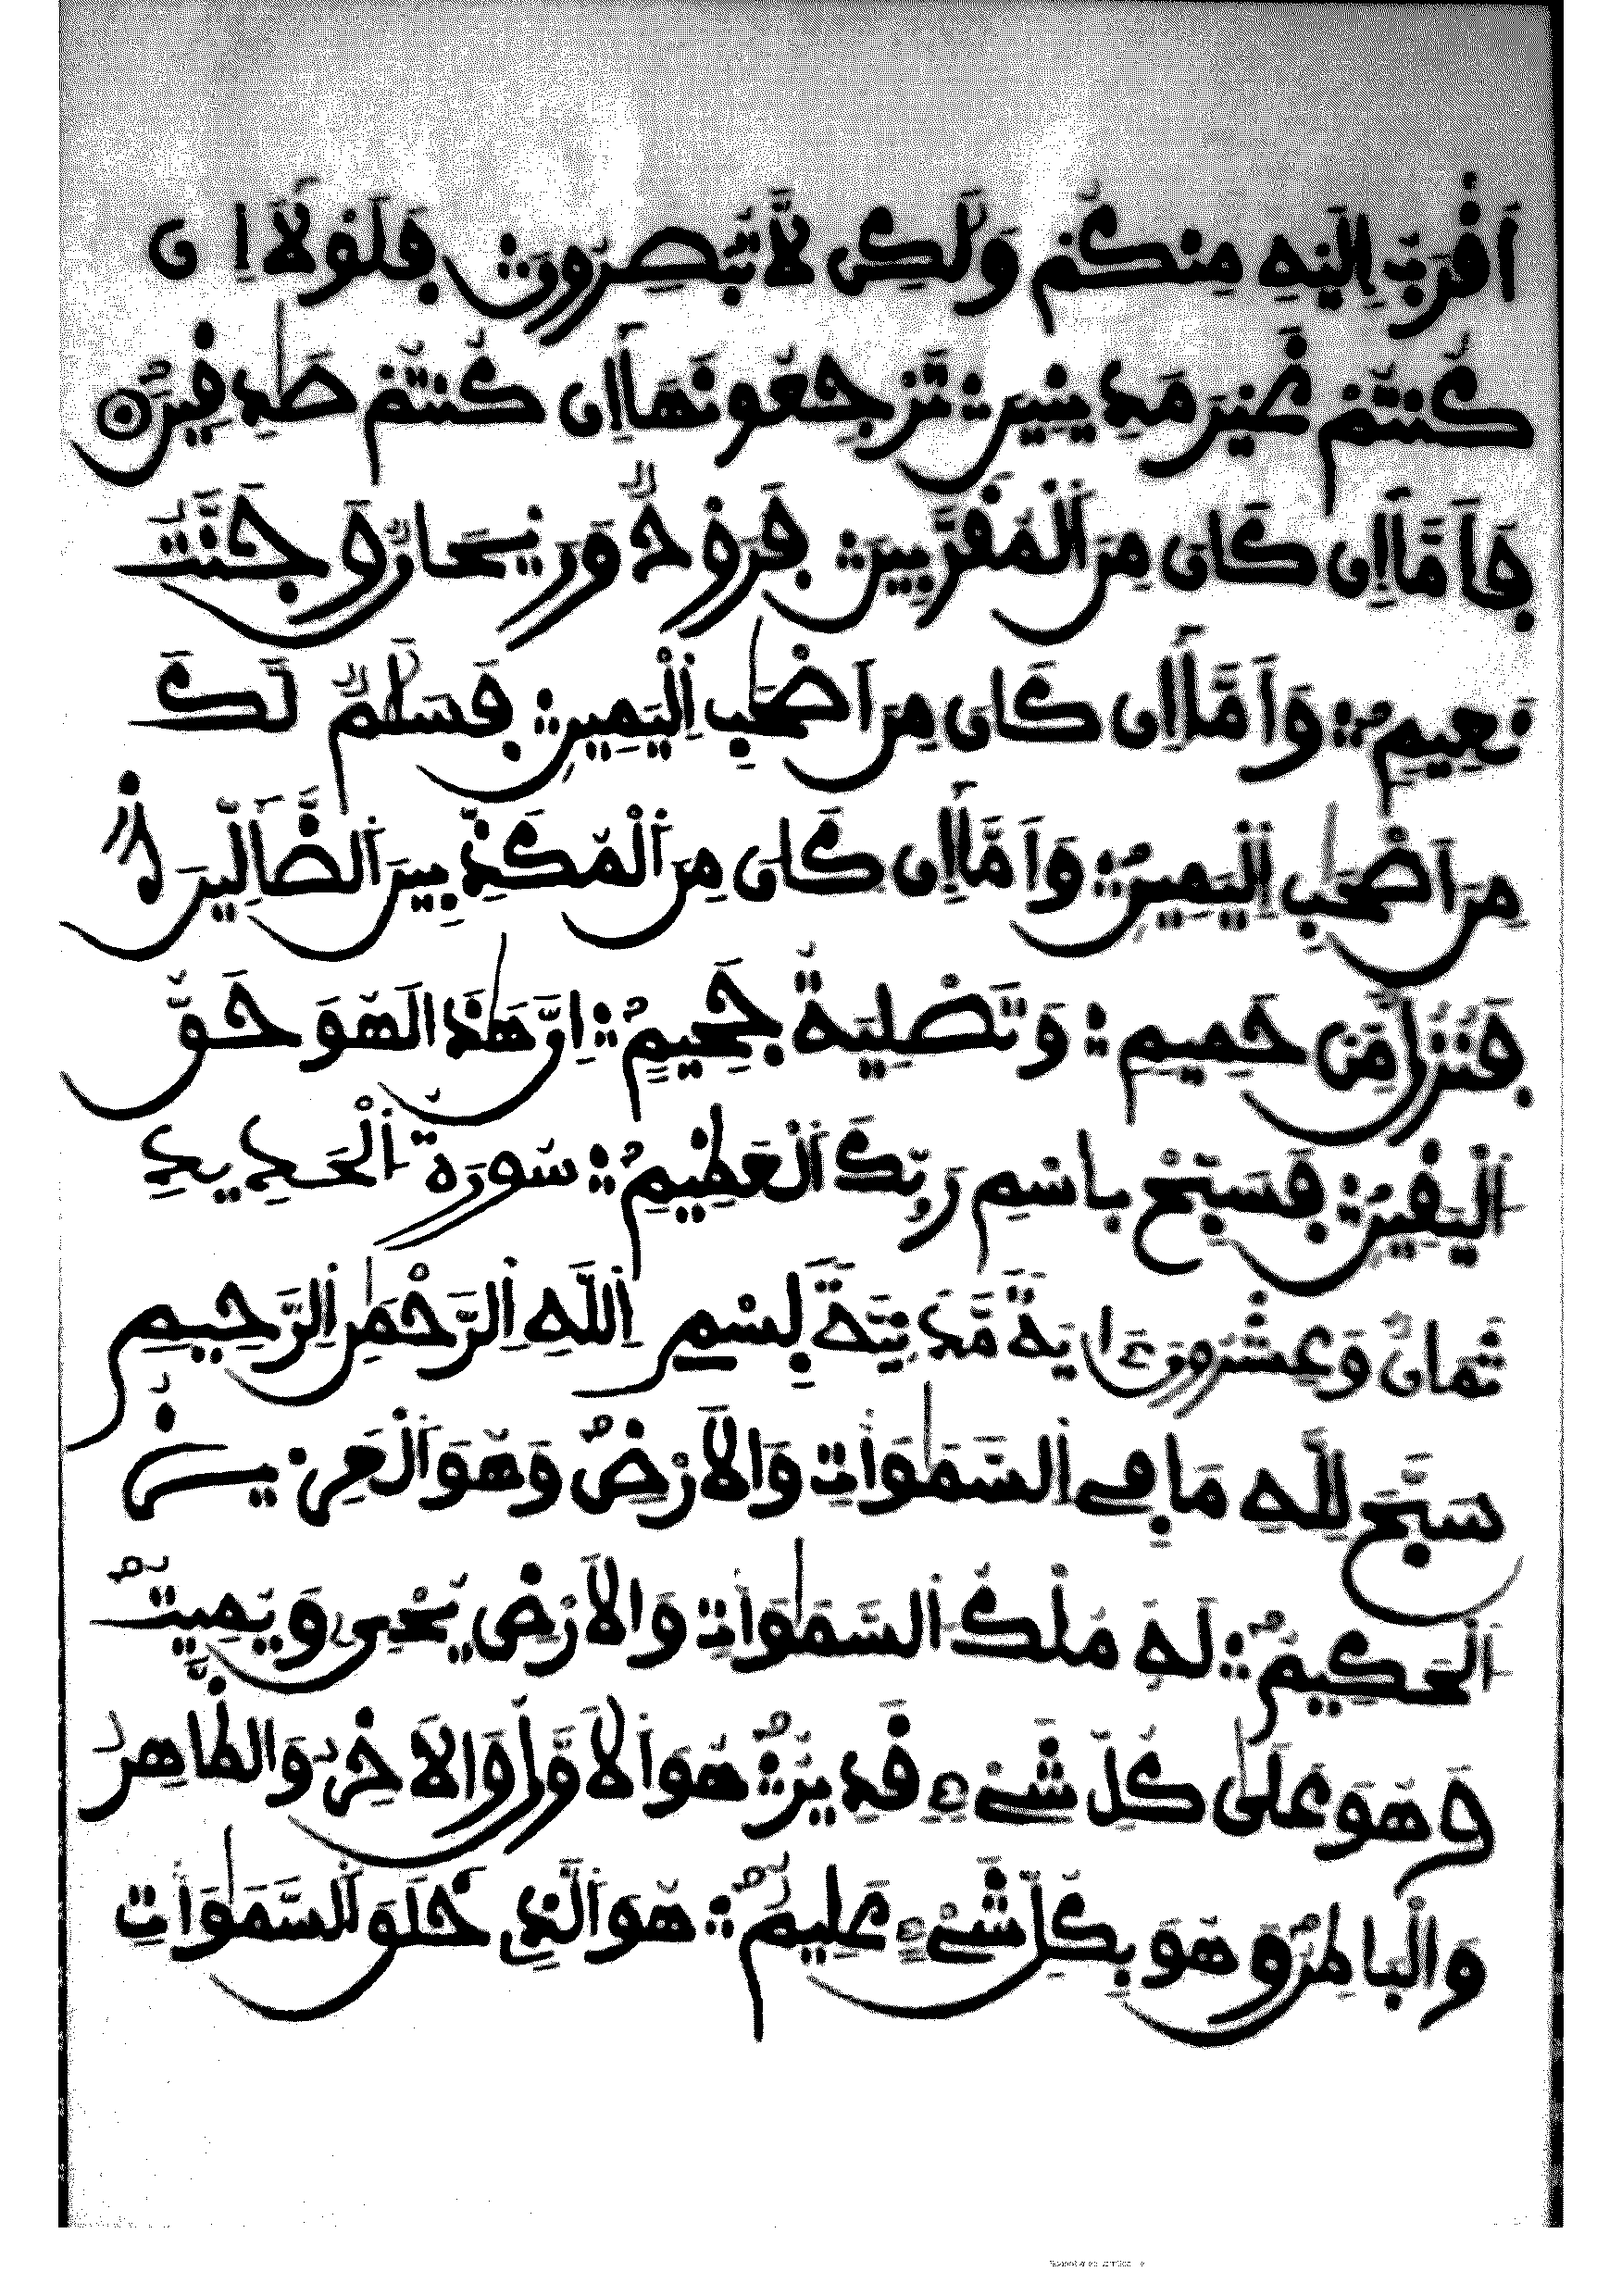 أَقْرَبُ إِلَيْهِ مِنكُمْ وَلَٰكِن لَّا تُبْصِرُونَ ؞ فَلَوْلَا إِن
كُنتُمْ غَيْرَ مَدِينِينَ ؞ تَرْجِعُونَهَا إِن كُنتُمْ صَٰدِقِينَ ۞
فَأَمَّا إِن كَانَ مِنَ ٱلْمُقَرَّبِينَ ؞ فَرَوْحٌ وَرَيْحَانٌ وَجَنَّتُ
نَعِيمٍ ؞ وَأَمَّا إِن كَانَ مِنَ أَصْحَٰبِ اِلْيَمِينِ ؞ فَسَلَٰمٌ لَّكَ
مِنَ أَصْحَٰبِ اِلْيَمِينِ ؞ وَأَمَّا إِن كَانَ مِنَ ٱلْمُكَذِّبِينَ ٱلضَّآلِّينَ
فَنُزُلٌ مِّنْ حَمِيمٍ ؞ وَتَصْلِيَةُ جَحِيمٍ ؞ إِنَّ هَٰذَا لَهُوَ حَقُّ
اَ۬لْيَقِينِ ؞ فَسَبِّحْ بِاسْمِ رَبِّكَ ٱلْعَظِيمِ ؞ سُورَةُ ٱلْحَدِيدِ
ثَمَانٌ وَعِشْرُونَ ءَايَةً مَّدَنِيَّةً بِسْمِ اِللَّهِ اِلرَّحْمَٰنِ اِلرَّحِيمِ
سَبَّحَ لِلَّهِ مَا فِي اِلسَّمَٰوَاتِ وَالْأَرْضِ وَهُوَ ٱلْعَزِيزُ
ٱلْحَكِيمُ ؞ لَهُ مُلْكُ ٱلسَّمَٰوَاتِ وَالْأَرْضِ يُحْيِۦ وَيُمِيتُ
وَهُوَ عَلَىٰ كُلِّ شَيْءٍ قَدِيرٌ ؞ هُوَ ٱلْأَوَّلُ وَالْآخِرُ وَالظَّاهِرُ
وَالْبَاطِنُ وَهُوَ بِكُلِّ شَيْءٍ عَلِيمٌ ؞ هُوَ ٱلَّذِي خَلَقَ ٱلسَّمَٰوَاتِ